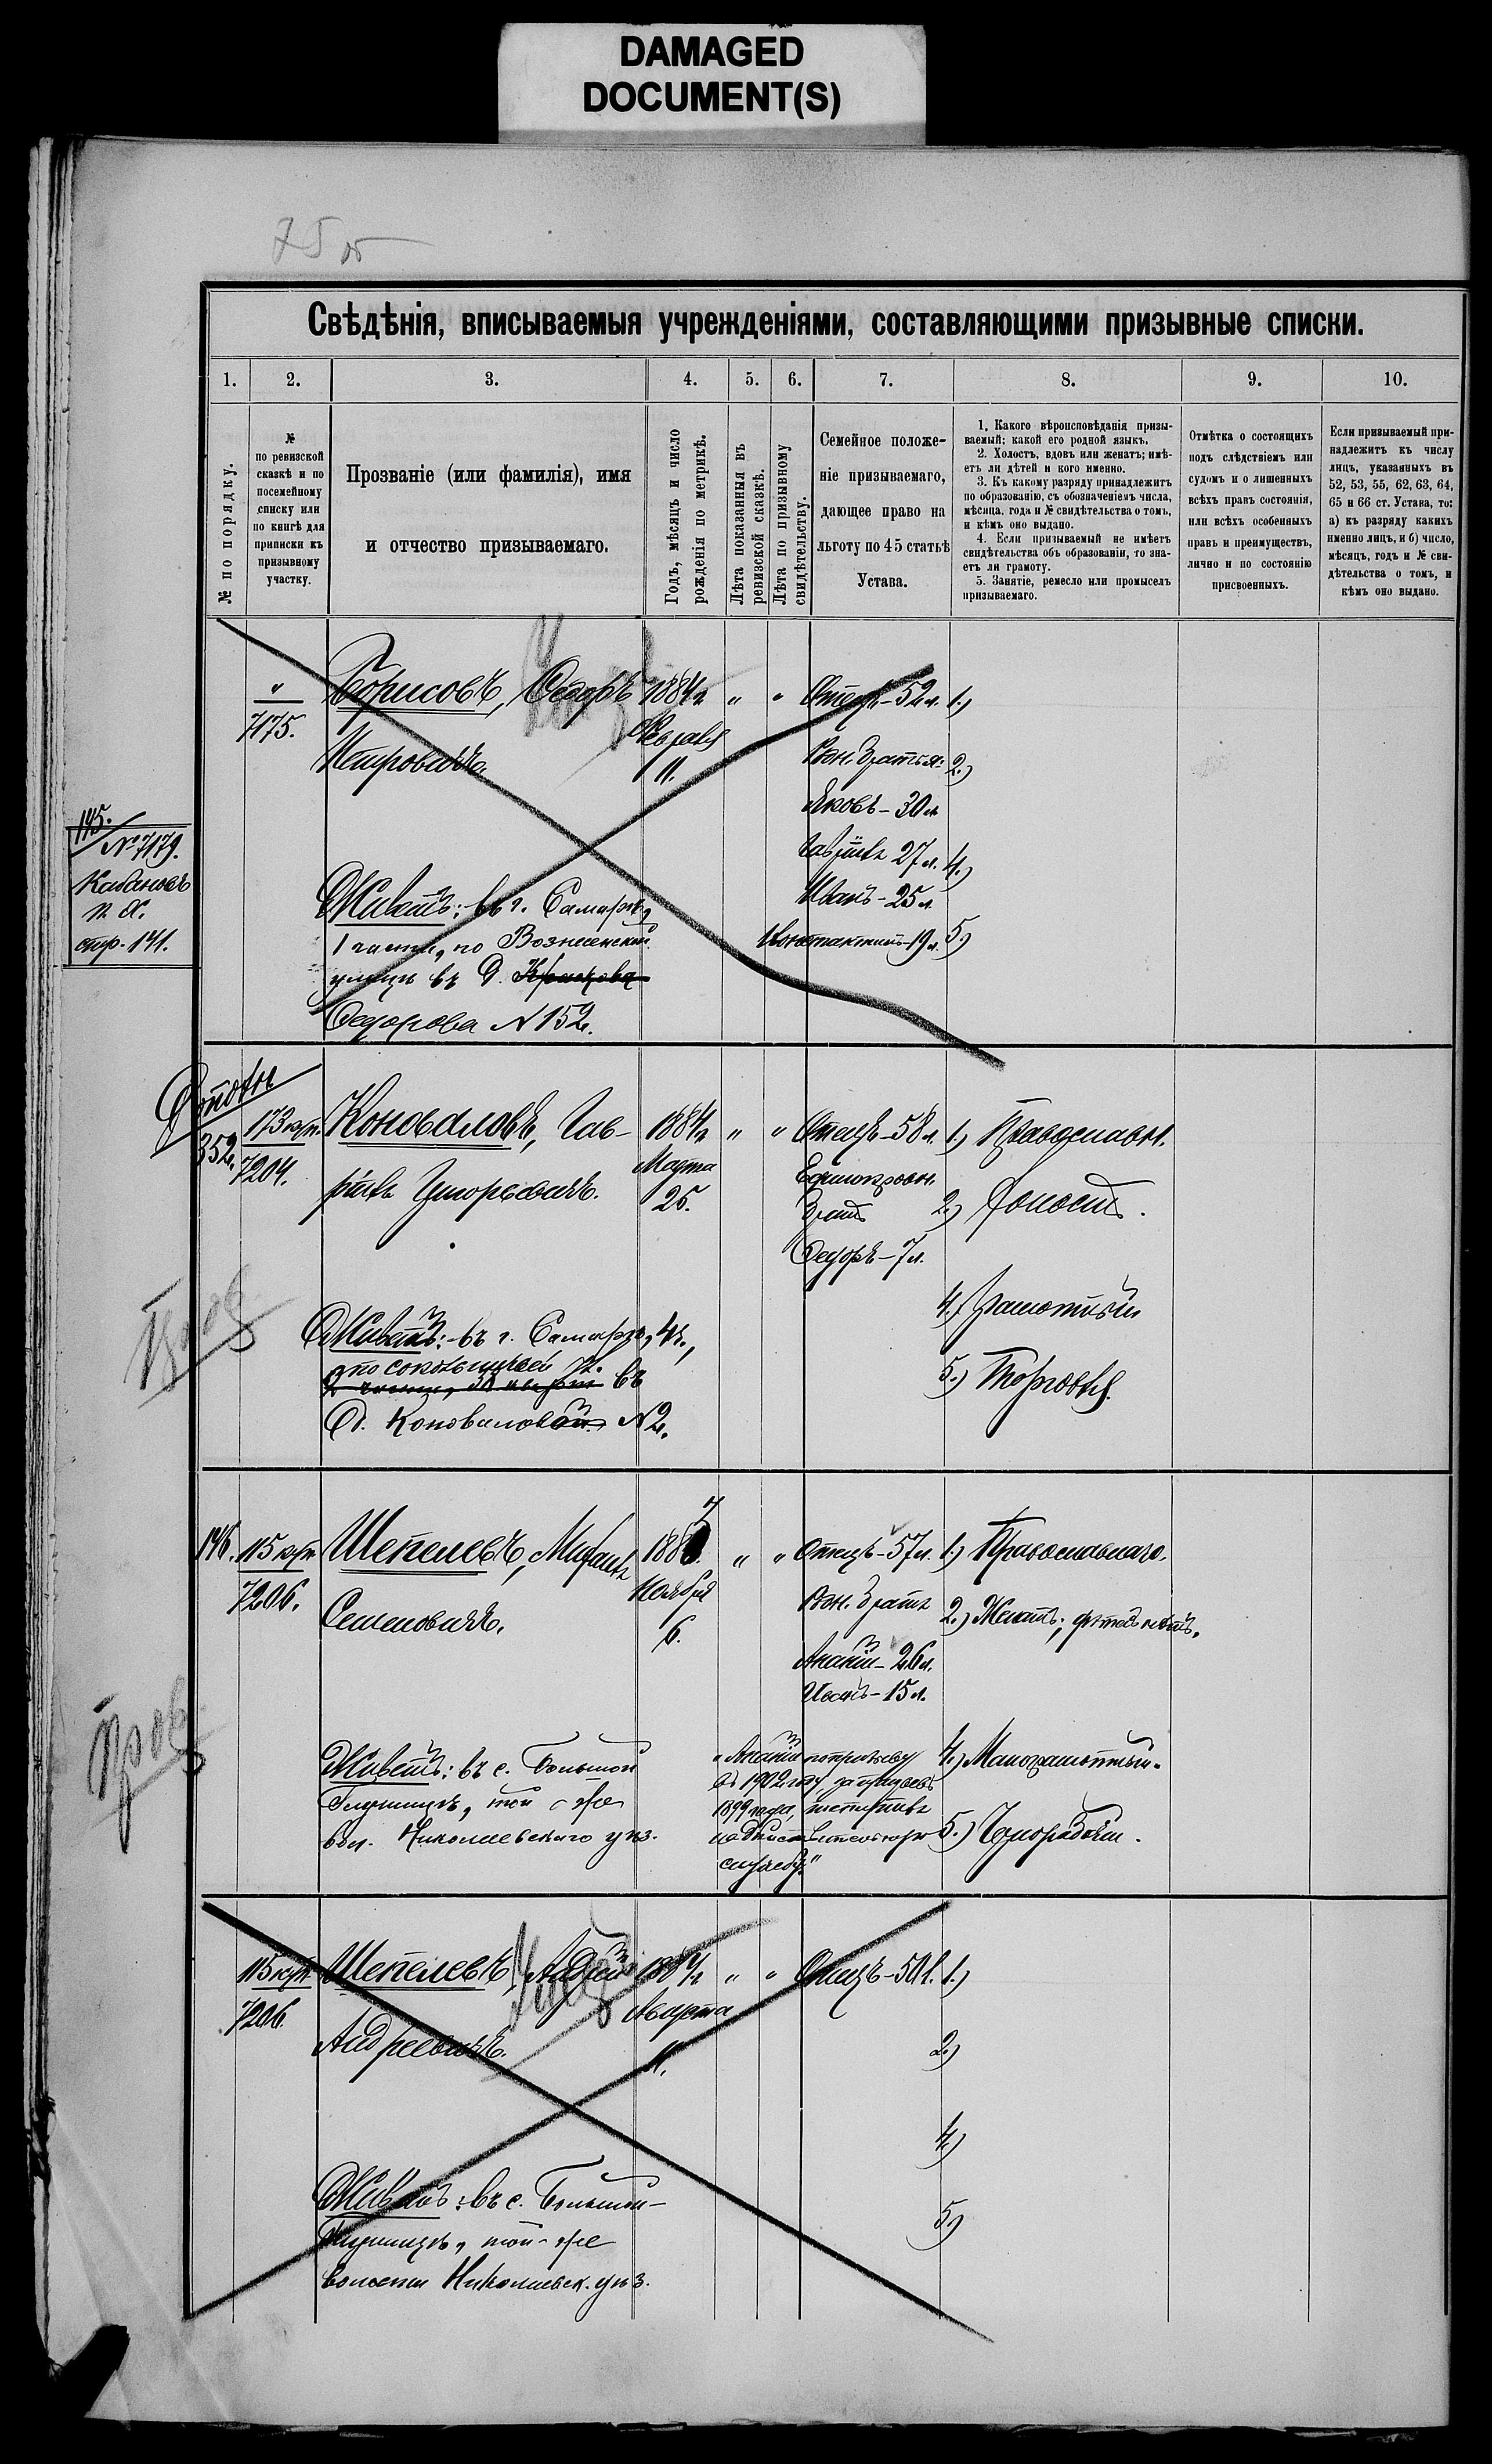 DAMAGED
DOCUMENT(S)
75 об
Свѣдѣнія, вписываемыя учрежденіями, составляющими призывные списки.
1. 2. 3. 4. 5. 6. 7. 8. 9. 10.
№ по порядку.
№
по ревизской
сказкѣ и по
посемейному
списку или
по книгѣ для
приписки къ
призывному
участку.
Прозваніе (или фамилія), имя
и отчество призываемаго.
Годъ, мѣсяцъ и число
рожденія по метрикѣ.
Лѣта показанныя въ
ревизской сказкѣ.
Лѣта по призывному
свидѣтельству.
Семейное положе-
ніе призываемаго,
дающее право на
льготу по 45 статьѣ
Устава.
1. Какого вѣроисповѣданія призы-
ваемый; какой его родной языкъ.
2. Холостъ, вдовъ или женатъ; имѣ-
етъ ли дѣтей и кого именно.
3. Къ какому разряду принадлежитъ
по образованію, съ обозначеніемъ числа,
мѣсяца, года и № свидѣтельства о томъ,
и кѣмъ оно выдано.
4. Если призываемый не имѣетъ
свидѣтельства объ образованіи, то зна-
етъ ли грамоту.
5. Занятіе, ремесло или промыселъ
призываемаго.
Отмѣтка о состоящихъ
подъ слѣдствіемъ или
судомъ и о лишенныхъ
всѣхъ правъ состоянія,
или всѣхъ особенныхъ
правъ и преимуществъ,
лично и по состоянію
присвоенныхъ.
Если призываемый при-
надлежитъ къ числу
лицъ, указанныхъ въ
52, 53, 55, 62, 63, 64,
65 и 66 ст. Устава, то:
а) къ разряду какихъ
именно лицъ, и б) число,
мѣсяцъ, годъ и № сви-
дѣтельства о томъ, и
кѣмъ оно выдано.
"
7175.
Борисовъ, Ѳедоръ
Петровичъ.
1884 г.
Февраля
11.
" "
Отецъ - 52 л.
Род. братья:
Яковъ - 30 л.
Гавріилъ 27 л.
Иванъ - 25 л.
Константинъ - 19 л.
1.)
2.)
4.)
5.)
145.
№ 7179.
Кабановъ
стр. 141.
Живетъ: въ г. Самарѣ,
1 части, по Вознесенской
улицѣ въ д.
Ѳедорова № 152.
352.
173 куп.
7204.
Коноваловъ, Гав-
ріилъ Григорьевичъ.
1884 г.
Марта
25.
" "
Отецъ - 58 л.
Единокровн.
братъ
Ѳедоръ - 7 л.
1.) Православн.
2.) Холостъ.
4.) Грамотный
5.) Торговля.
Живетъ: въ г. Самарѣ, 4 ч.,
по Сокольничьей ул.
въ
д. Коновалова № 2.
146.
115 куп.
7206.
Шепелевъ, Михаилъ
Семеновичъ.
1883.
Ноября
6.
" "
Отецъ - 57 л.
Род. братъ
Ананій - 26 л.
Иванъ - 15 л.
1.) Православнаго.
2.) Женатъ; дѣтей нѣтъ.
4.) Малограмотный.
5.) Чернорабочій.
пров.
Живетъ: въ с. Большой
Глушицѣ, той же
вол. Николаевского уѣз.
"Ананій по призыву
въ 1902 году, за призывъ
1899 года, поступилъ
на дѣйствительную
службу."
115 куп.
7206.
Шепелевъ, Андрей
Андреевичъ.
1884 г.
Марта
11.
" "
Отецъ - 50 л.
1.)
2.)
4.)
5.)
Живетъ: въ с. Большой-
Глушицѣ, той-же
волости Николаевск. уѣз.